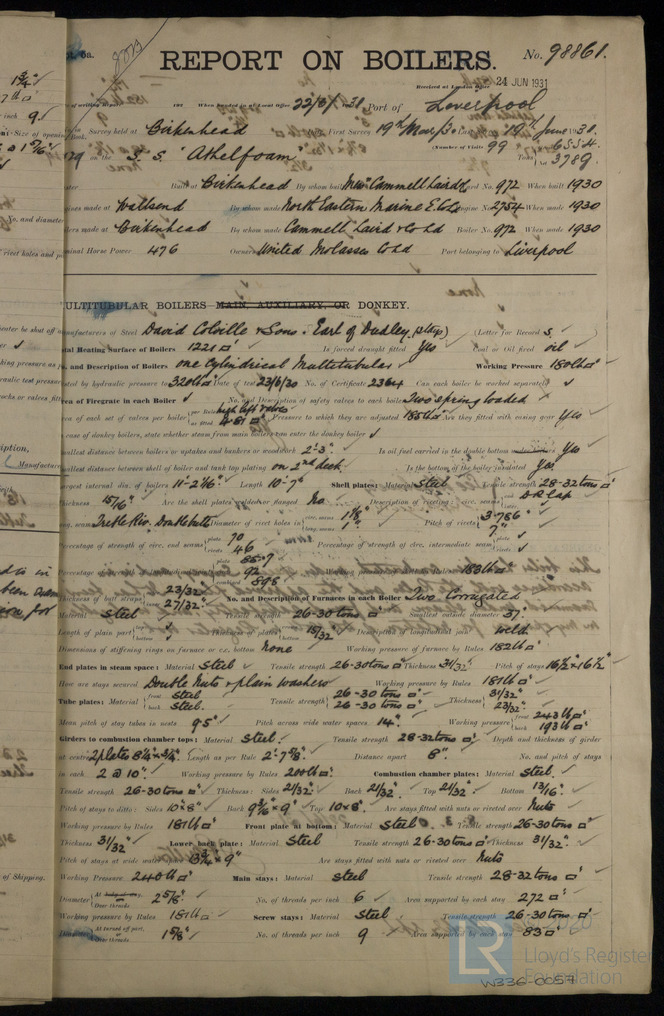 REPORT ON BOILERS.
No. 98861.
Received at London Office 24 JUN 1931
When handed in at Local Office 22/6/1931 Port of Liverpool
Survey held at Birkenhead First Survey 19th June 1931
(Number of Visits 99
on the S.S. "Athelfoam" Tons 6554 3789
Built at Birkenhead By whom built Messrs Cammell Laird Yard No. 972 When built 1930
made at Wallsend By whom made North Eastern Marine E Co Ld Engine No 2754 When made 1930
made at Birkenhead By whom made Cammell Laird & Co Ld Boiler No. 972 When made 1930
Horse Power 476 Owners United Molasses Co Ld Port belonging to Liverpool
MULTITUBULAR BOILERS MAIN, AUXILIARY, OR DONKEY.
Manufacturers of Steel David Colville & Sons. Earl of Dudley. (Stays) (Letter for Record S.
Total Heating Surface of Boilers 1221 □' Is forced draught fitted Yes Coal or Oil fired oil
No. and Description of Boilers one Cylindrical Multitubular Working Pressure 180 lb □"
Tested by hydraulic pressure to 320 lb □" Date of test 23/6/30 No. of Certificate 2364 Can each boiler be worked separately
Area of Firegrate in each Boiler No. and Description of safety valves to each boiler Two spring loaded
Area of each set of valves per boiler high lift valves 4.81 □" Pressure to which they are adjusted 185 lb □" Are they fitted with easing gear Yes
In case of donkey boilers, state whether steam from main boilers can enter the donkey boiler
Smallest distance between boilers or uptakes and bunkers or woodwork 2'-3" Is oil fuel carried in the double bottom under boilers Yes
Smallest distance between shell of boiler and tank top plating on 2nd deck Is the bottom of the boiler insulated Yes
Largest internal dia. of boilers 11'-2 1/16" Length 10'-7" Shell plates: Material Steel Tensile strength 28-32 tons □"
Thickness 15/16" Are the shell plates welded or flanged No Description of riveting: circ. seams D.R. Lap
long. seams Treble Riv. Double butt Diameter of rivet holes in 1 1/8" Pitch of rivets 3.786" 7"
Percentage of strength of circ. end seams 70 46 Percentage of strength of circ. intermediate seam
85.7
92
89.8 183 lb □"
Thickness of butt straps 23/32" 27/32" No. and Description of Furnaces in each Boiler Two Corrugated
Material steel Tensile strength 26-30 tons □" Smallest outside diameter 37"
Length of plain part Thickness of plates 15/32" Description of longitudinal joint Weld
Dimensions of stiffening rings on furnace or c.c. bottom None Working pressure of furnace by Rules 182 lb □"
End plates in steam space: Material Steel Tensile strength 26-30 tons □" Thickness 31/32" Pitch of stays 16 1/2" x 16 1/2"
How are stays secured Double Nuts & plain washers Working pressure by Rules 181 lb □"
Tube plates: Material front Steel back Steel Tensile strength 26-30 tons □" 26-30 tons □" Thickness 31/32" 23/32"
Mean pitch of stay tubes in nests 9.5" Pitch across wide water spaces 14" Working pressure front 243 lb □" back 193 lb □"
Girders to combustion chamber tops: Material Steel Tensile strength 28-32 tons □" Depth and thickness of girder
at centre 2 plates 8 1/4" x 3/4" Length as per Rule 2'-7 7/8" Distance apart 8" No. and pitch of stays
in each 2 @ 10" Working pressure by Rules 200 lb □" Combustion chamber plates: Material Steel.
Tensile strength 26-30 tons □" Thickness: Sides 21/32" Back 21/32" Top 21/32" Bottom 13/16"
Pitch of stays to ditto: Sides 10" x 8" Back 9 3/16" x 9" Top 10 x 8" Are stays fitted with nuts or riveted over Nuts
Working pressure by Rules 181 lb □" Front plate at bottom: Material Steel Tensile strength 26-30 tons □"
Thickness 31/32" Lower back plate: Material Steel Tensile strength 26-30 tons □" Thickness 31/32"
Pitch of stays at wide water 13 3/4" x 9" Are stays fitted with nuts or riveted over Nuts
Working Pressure 240 lb □" Main stays: Material Steel Tensile strength 28-32 tons □"
Diameter 2 5/8" No. of threads per inch 6 Area supported by each stay 272 □"
Working pressure by Rules 181 lb □" Screw stays: Material Steel Tensile strength 26-30 tons □"
Diameter 1 5/8" No. of threads per inch 9 Area supported by each stay 83 □"
LR Lloyd's Register Foundation
W336-0057